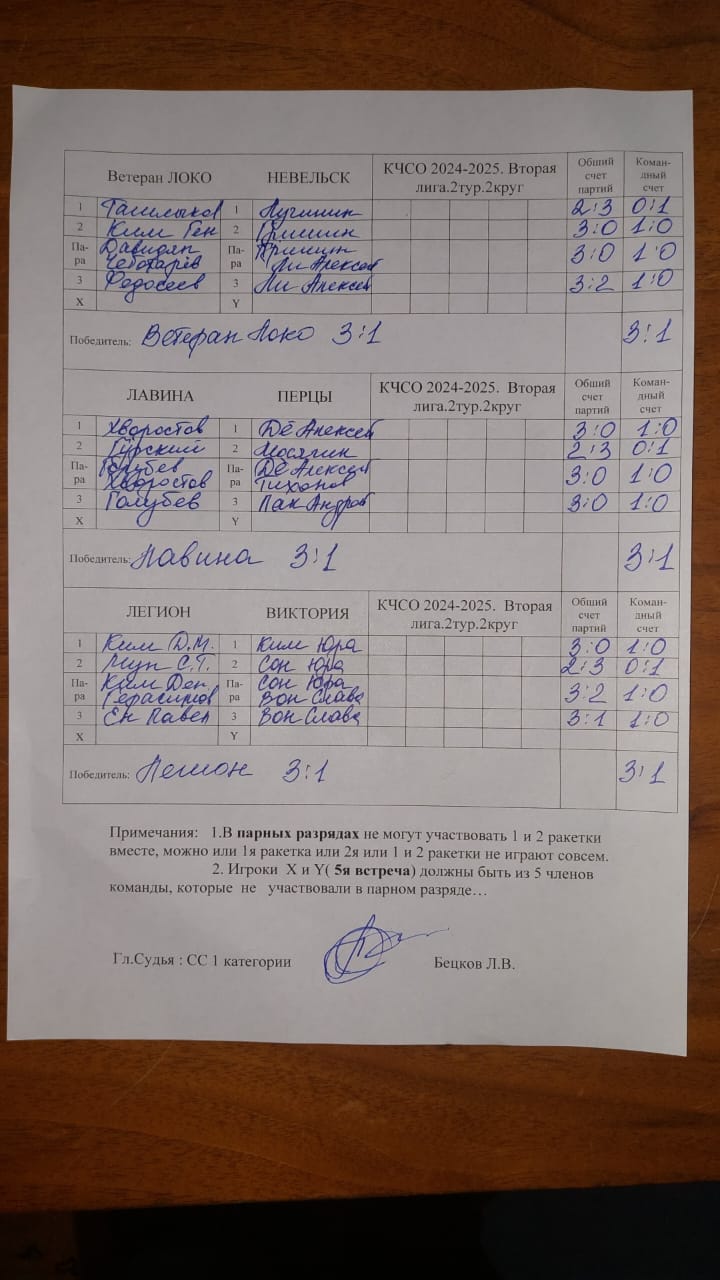 Ветеран ЛОКО НЕВЕЛЬСК КЧСО 2024-2025. Вторая лига.2тур.2круг Общий счет партий Коман-дный счет
1 1 Лучинин 2:3 0:1
2 Ким Ген 2 Гришин 3:0 1:0
Па-ра Давидян Чеботарёв Па-ра Ли Алексей 3:0 1:0
3 Федосеев 3 Ли Алексей 3:2 1:0
X Y
Победитель: Ветеран Локо 3:1 3:1
ЛАВИНА ПЕРЦЫ КЧСО 2024-2025. Вторая лига.2тур.2круг Общий счет партий Коман-дный счет
1 Хворостов 1 Дё Алексей 3:0 1:0
2 Гурский 2 Мосягин 2:3 0:1
Па-ра Голубев Хворостов Па-ра Дё Алексей Тихонов 3:0 1:0
3 Голубев 3 Пак Андрей 3:0 1:0
X Y
Победитель: Лавина 3:1 3:1
ЛЕГИОН ВИКТОРИЯ КЧСО 2024-2025. Вторая лига.2тур.2круг Общий счет партий Коман-дный счет
1 Ким Д.М. 1 Ким Юра 3:0 1:0
2 Мун С.Т. 2 Сон Юра 2:3 0:1
Па-ра Ким Ден Герасимов Па-ра Сон Юра Вон Слава 3:2 1:0
3 Ен Павел 3 Вон Слава 3:1 1:0
X Y
Победитель: Легион 3:1 3:1
Примечания: 1.В парных разрядах не могут участвовать 1 и 2 ракетки
вместе, можно или 1я ракетка или 2я или 1 и 2 ракетки не играют совсем.
2. Игроки X и Y( 5я встреча) должны быть из 5 членов
команды, которые не участвовали в парном разряде…
Гл.Судья : СС 1 категории Бецков Л.В.